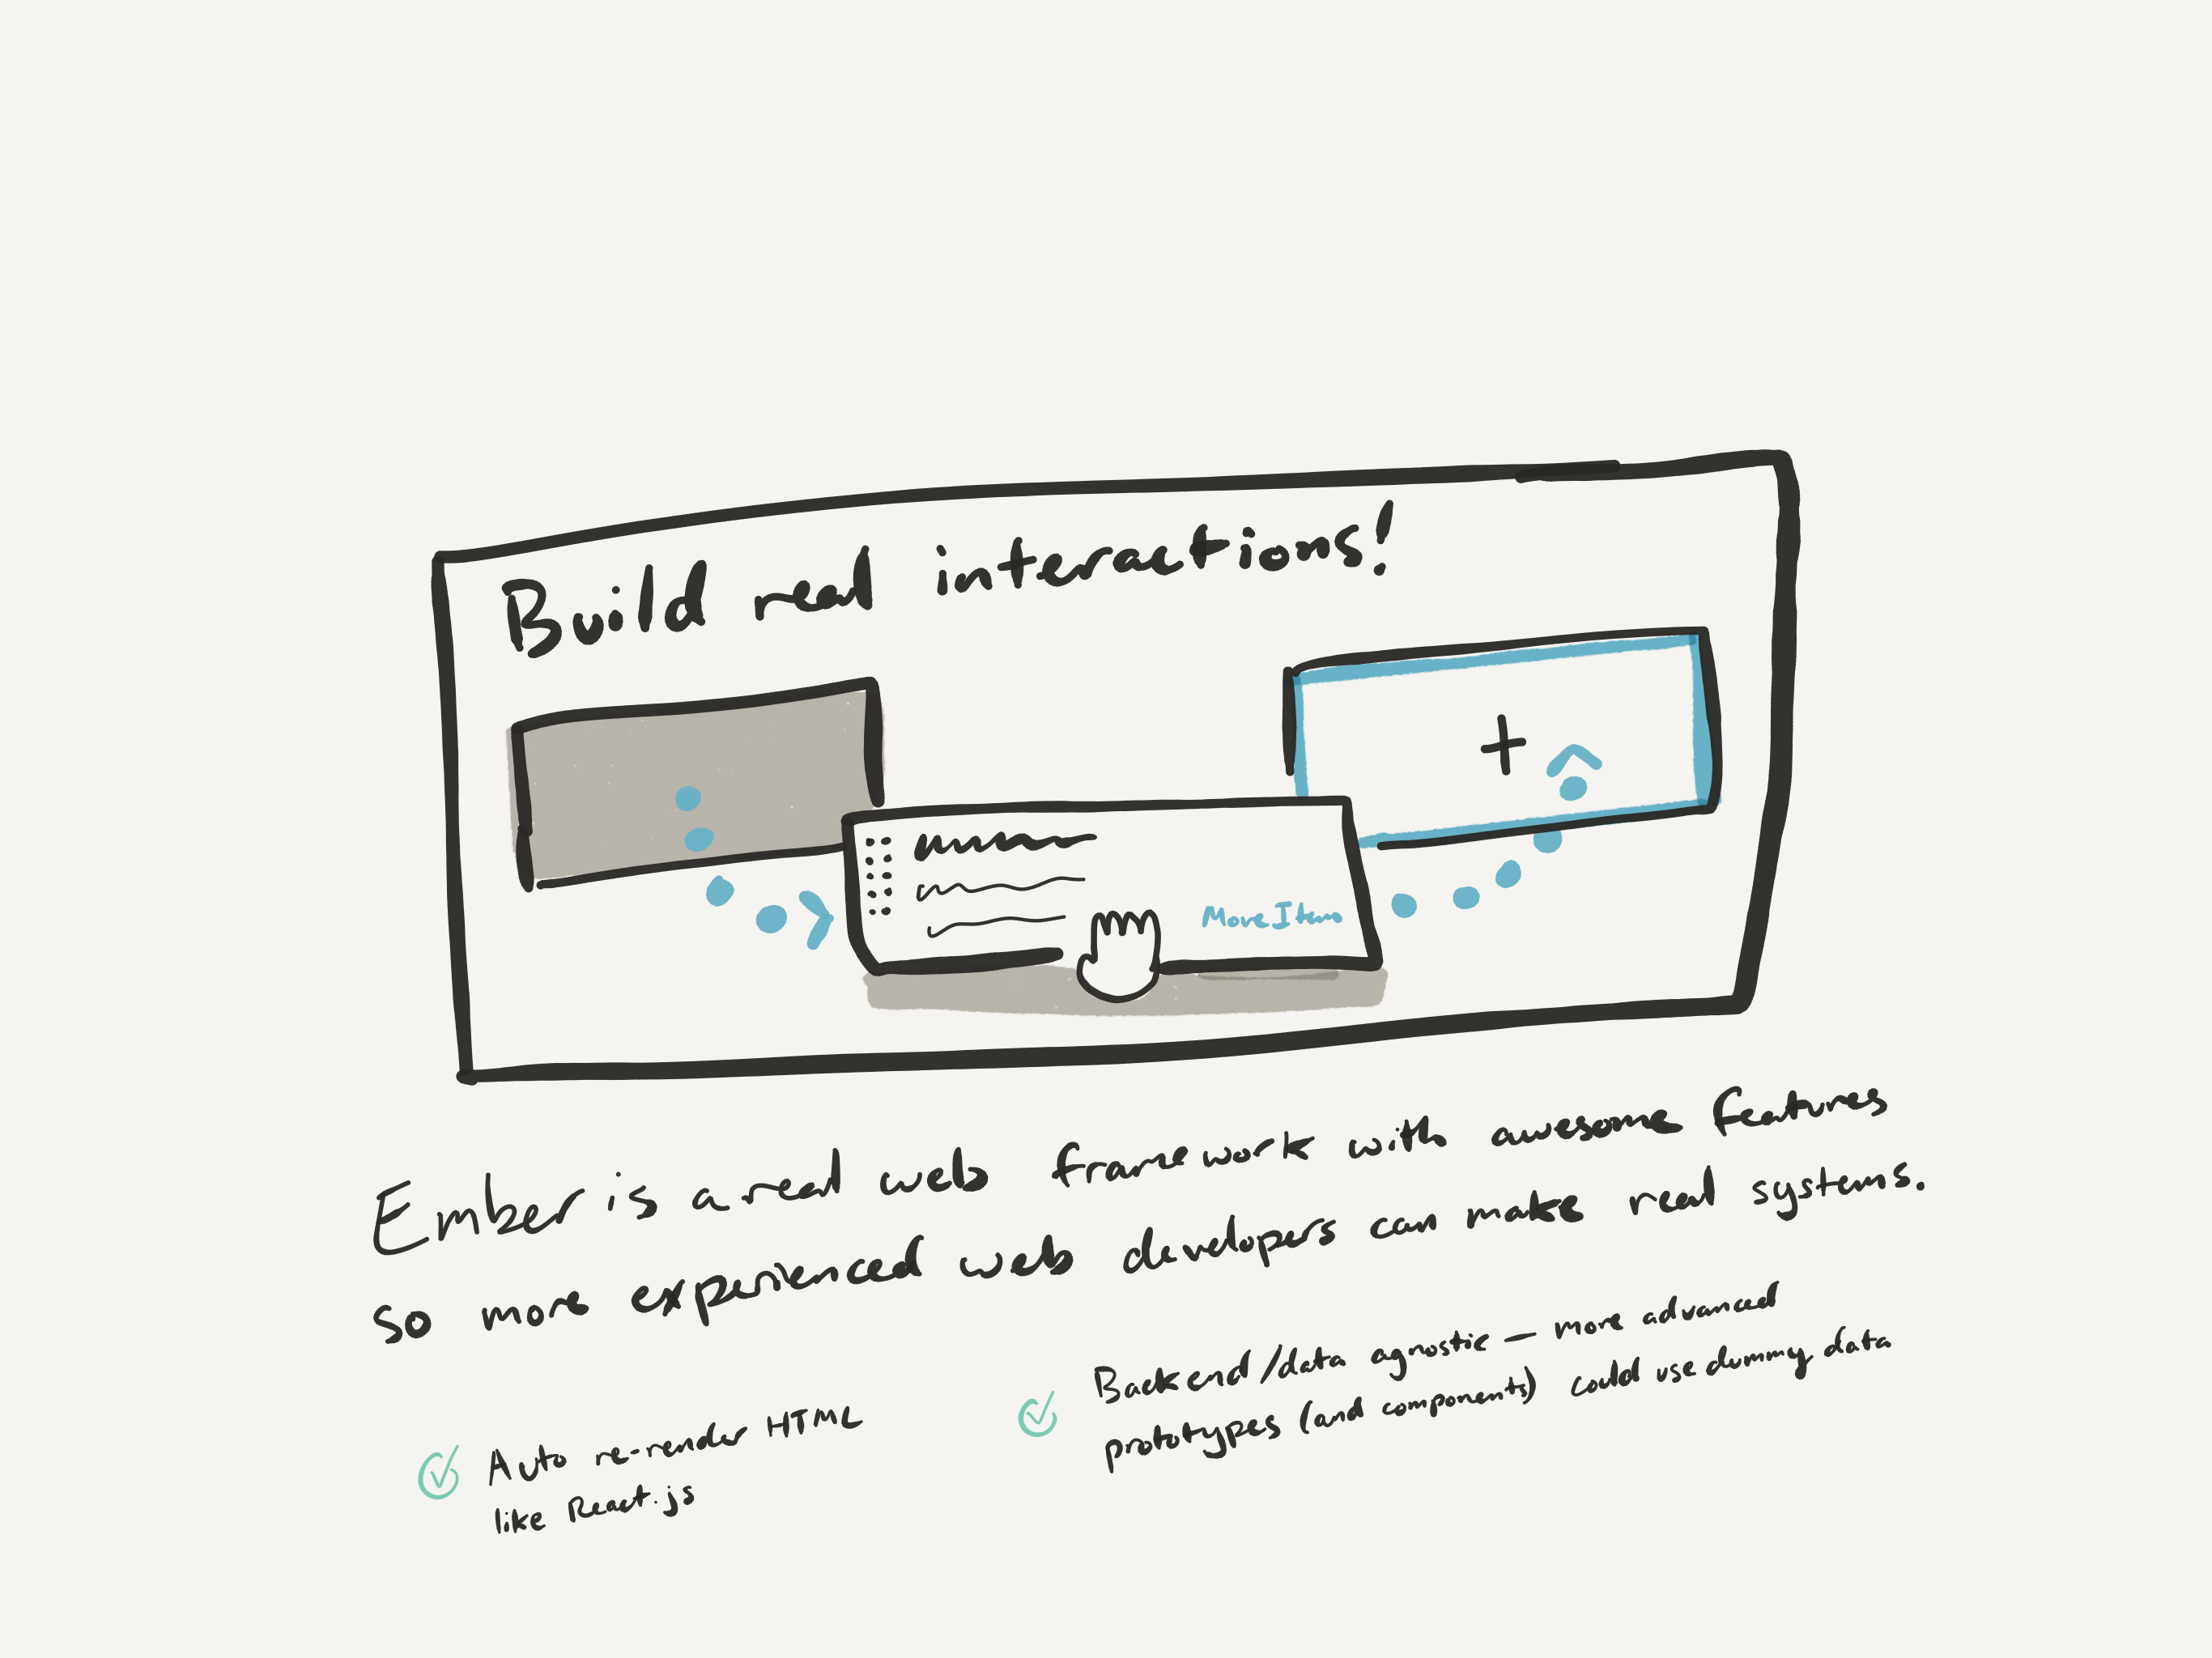 Build real interactions!
+
Move Item
Ember is a real web framework with awesome features
so more experienced web developers can make real systems.
Auto re-render HTML
like React.js
Backend/data agnostic — more advanced
prototypes (and components) could use dummy data